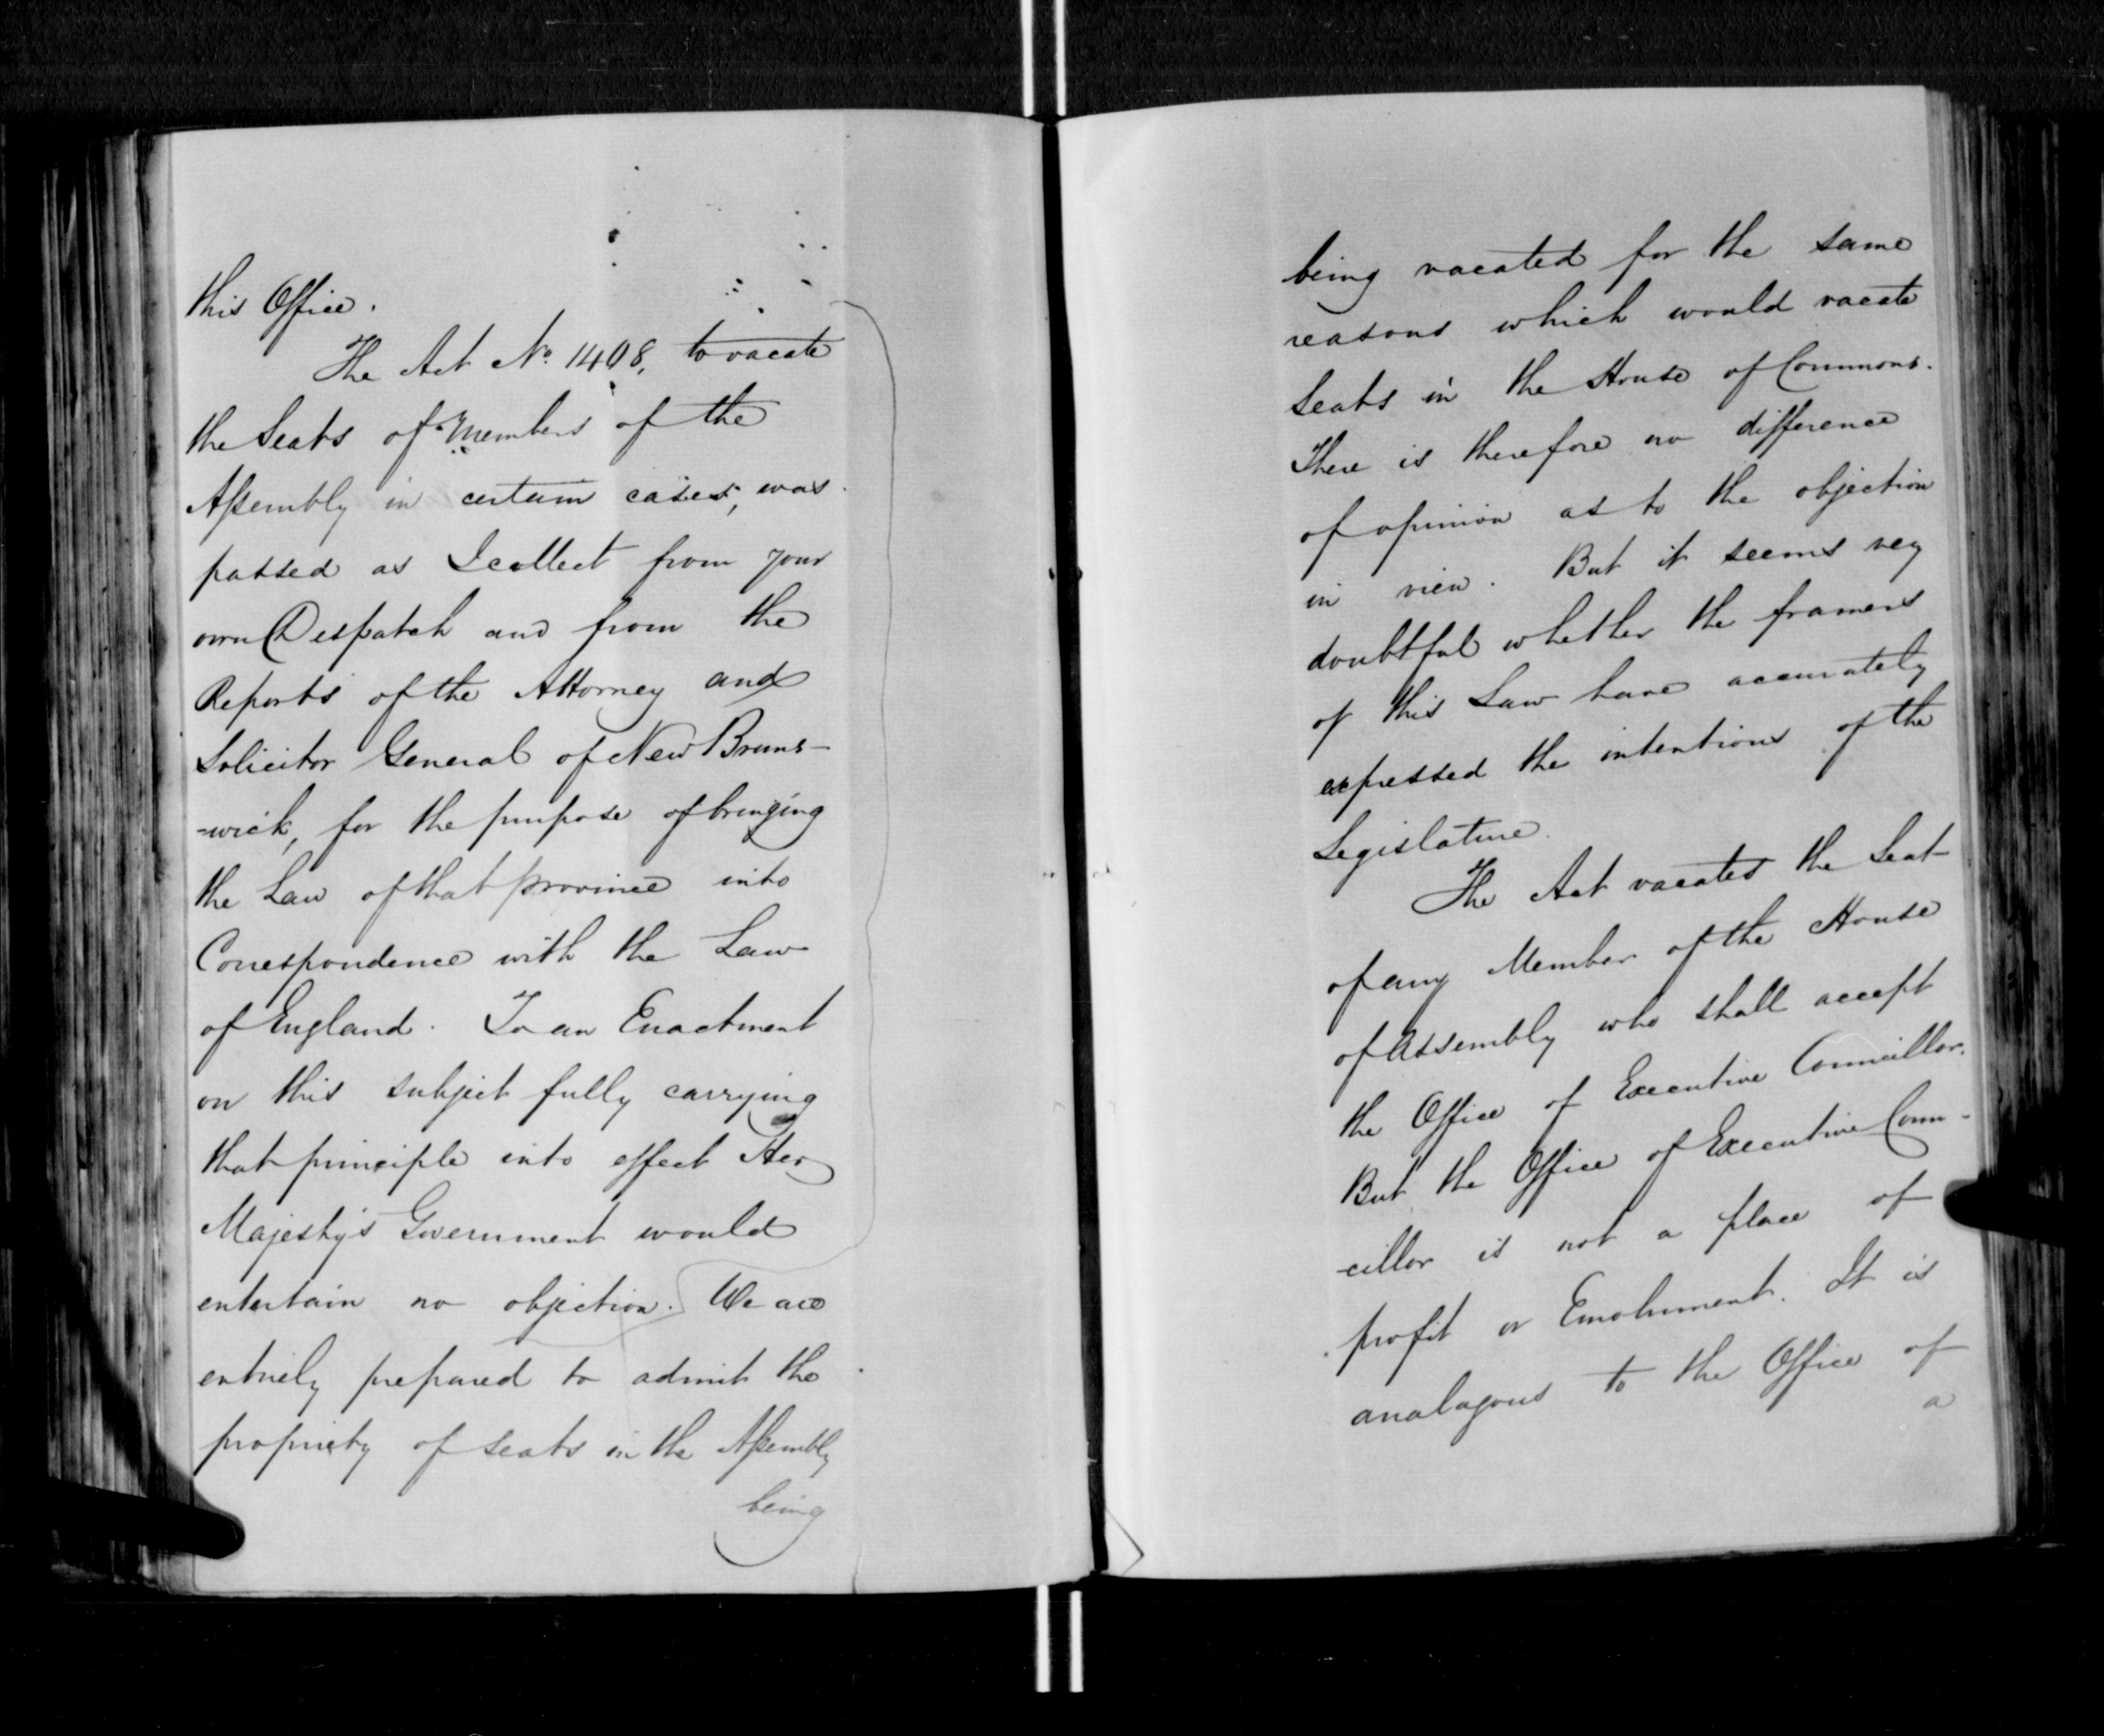 this Office.
The Act No. 1408, to vacate
the Seats of Members of the
Assembly in certain cases, was
passed as I collect from your
own Despatch and from the
Reports of the Attorney and
Solicitor General of New Bruns-
-wick, for the purpose of bringing
the Law of that province into
Correspondence with the Law
of England. To an Enactment
on this subject fully carrying
that principle into effect Her
Majesty's Government would
entertain no objection. We are
entirely prepared to admit the
propriety of seats in the Assembly
being
being vacated for the same
reasons which would vacate
Seats in the House of Commons.
There is therefore no difference
of opinion as to the objection
in view. But it seems very
doubtful whether the framers
of this Law have accurately
expressed the intentions of the
Legislature.
The Act vacates the Seat
of any Member of the House
of Assembly who shall accept
the Office of Executive Councillor.
But the Office of Executive Coun-
-cillor is not a place of
profit or Emolument. It is
analagous to the Office of
a